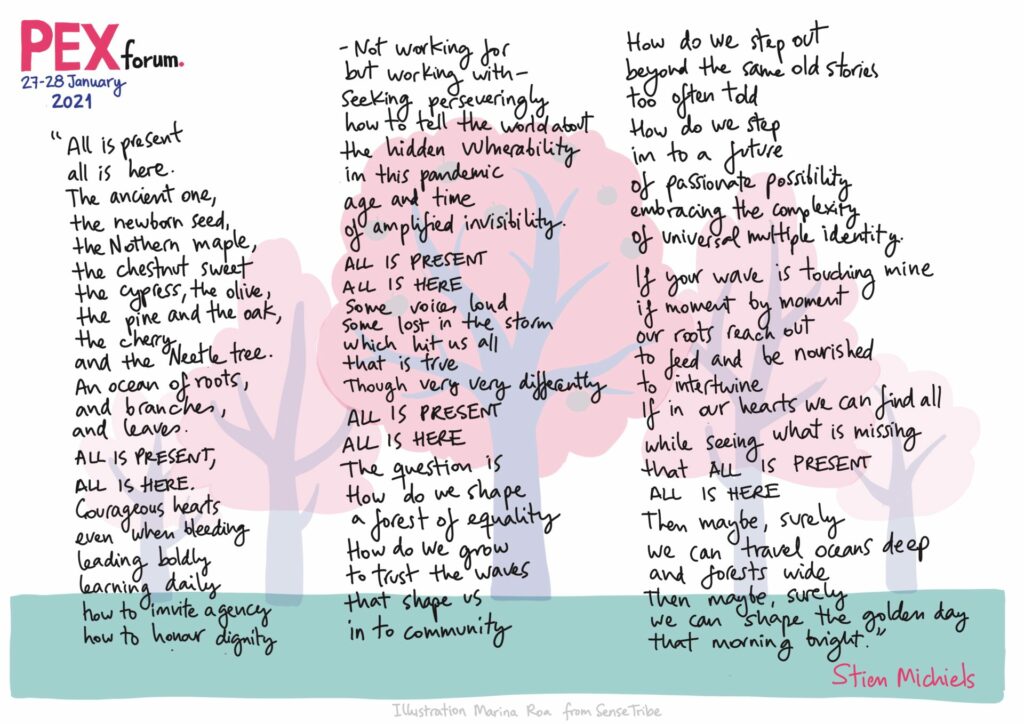 PEXforum.
27-28 January
2021
"All is present
all is here.
The ancient one,
the newborn seed,
the Nothern maple,
the chestnut sweet
the cypress, the olive,
the pine and the oak,
the cherry
and the Neetle tree.
An ocean of roots,
and branches,
and leaves.
ALL IS PRESENT,
ALL IS HERE.
Courageous hearts
even when bleeding
leading boldly
learning daily
how to invite agency
how to honour dignity
-Not working for
but working with-
seeking perseveringly
how to tell the world about
the hidden vulnerability
in this pandemic
age and time
of amplified invisibility.
ALL IS PRESENT
ALL IS HERE
Some voices loud
some lost in the storm
which hit us all
that is true
Though very very differently
ALL IS PRESENT
ALL IS HERE
The question is
How do we shape
a forest of equality
How do we grow
to trust the waves
that shape us
in to community
How do we step out
beyond the same old stories
too often told
How do we step
in to a future
of passionate possibility
embracing the complexity
of universal multiple identity.
If your wave is touching mine
if moment by moment
our roots reach out
to feed and be nourished
to intertwine
If in our hearts we can find all
while seeing what is missing
that ALL IS PRESENT
ALL IS HERE
Then maybe, surely
we can travel oceans deep
and forests wide
Then maybe, surely
we can shape the golden day
that morning bright."
Stien Michiels
Illustration Marina Roa from SenseTribe